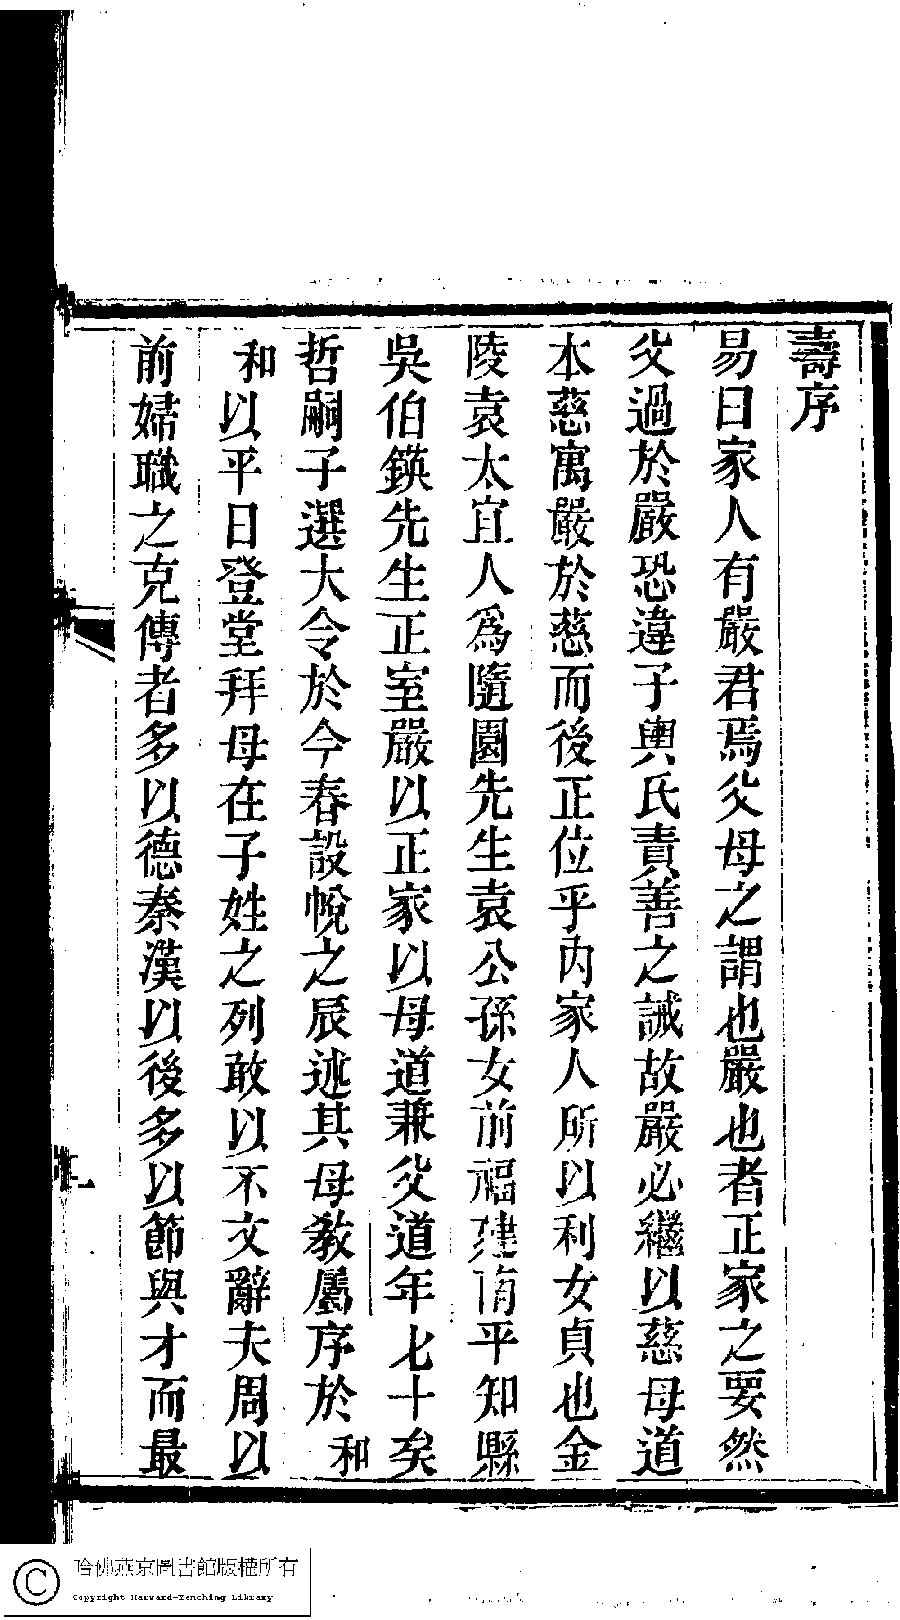 壽序
易曰家人有嚴君焉父母之謂也嚴也者正家之要然
父過於嚴恐違子輿氏責善之誡故嚴必繼以慈母道
本慈寓嚴於慈而後正位乎內家人所以利女貞也金
陵袁太宜人為隨園先生袁公孫女前福建南平知縣
吳伯鍈先生正室嚴以正家以母道兼父道年七十矣
哲嗣子選大令於今春設帨之辰述其母教屬序於和
和以平日登堂拜母在子姓之列敢以不文辭夫周以
前婦職之克傳者多以德秦漢以後多以節與才而最
一
哈佛燕京圖書館版權所有
Copyright Harvard-Yenching Library